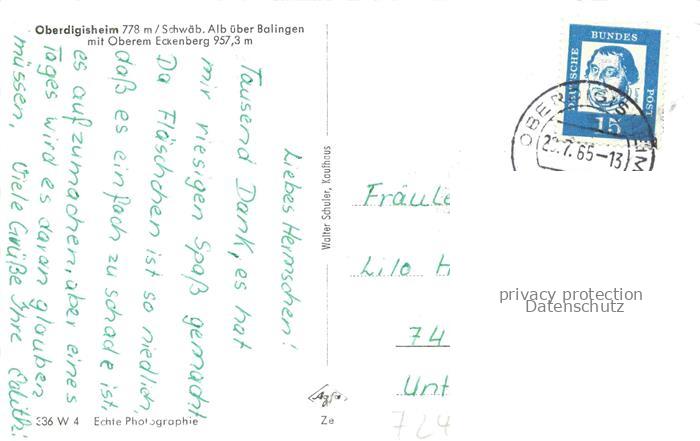 Oberdigisheim 778 m / Schwäb. Alb über Balingen
mit Oberem Eckenberg 957,3 m
Liebes Hermschen!
Tausend Dank, es hat
mir riesigen Spaß gemacht
Da Fläschchen ist so niedlich,
daß es einfach zu schade ist,
es aufzumachen, aber eines
Tages wird es daran glauben
müssen, Viele Grüße Ihre
336 W 4 Echte Photographie
Walter Schuler, Kaufhaus
Agfa
Ze
DEUTSCHE
BUNDES
POST
15
.7.65-13
Fräule
Lilo H
74
Unt
724
privacy protection
Datenschutz